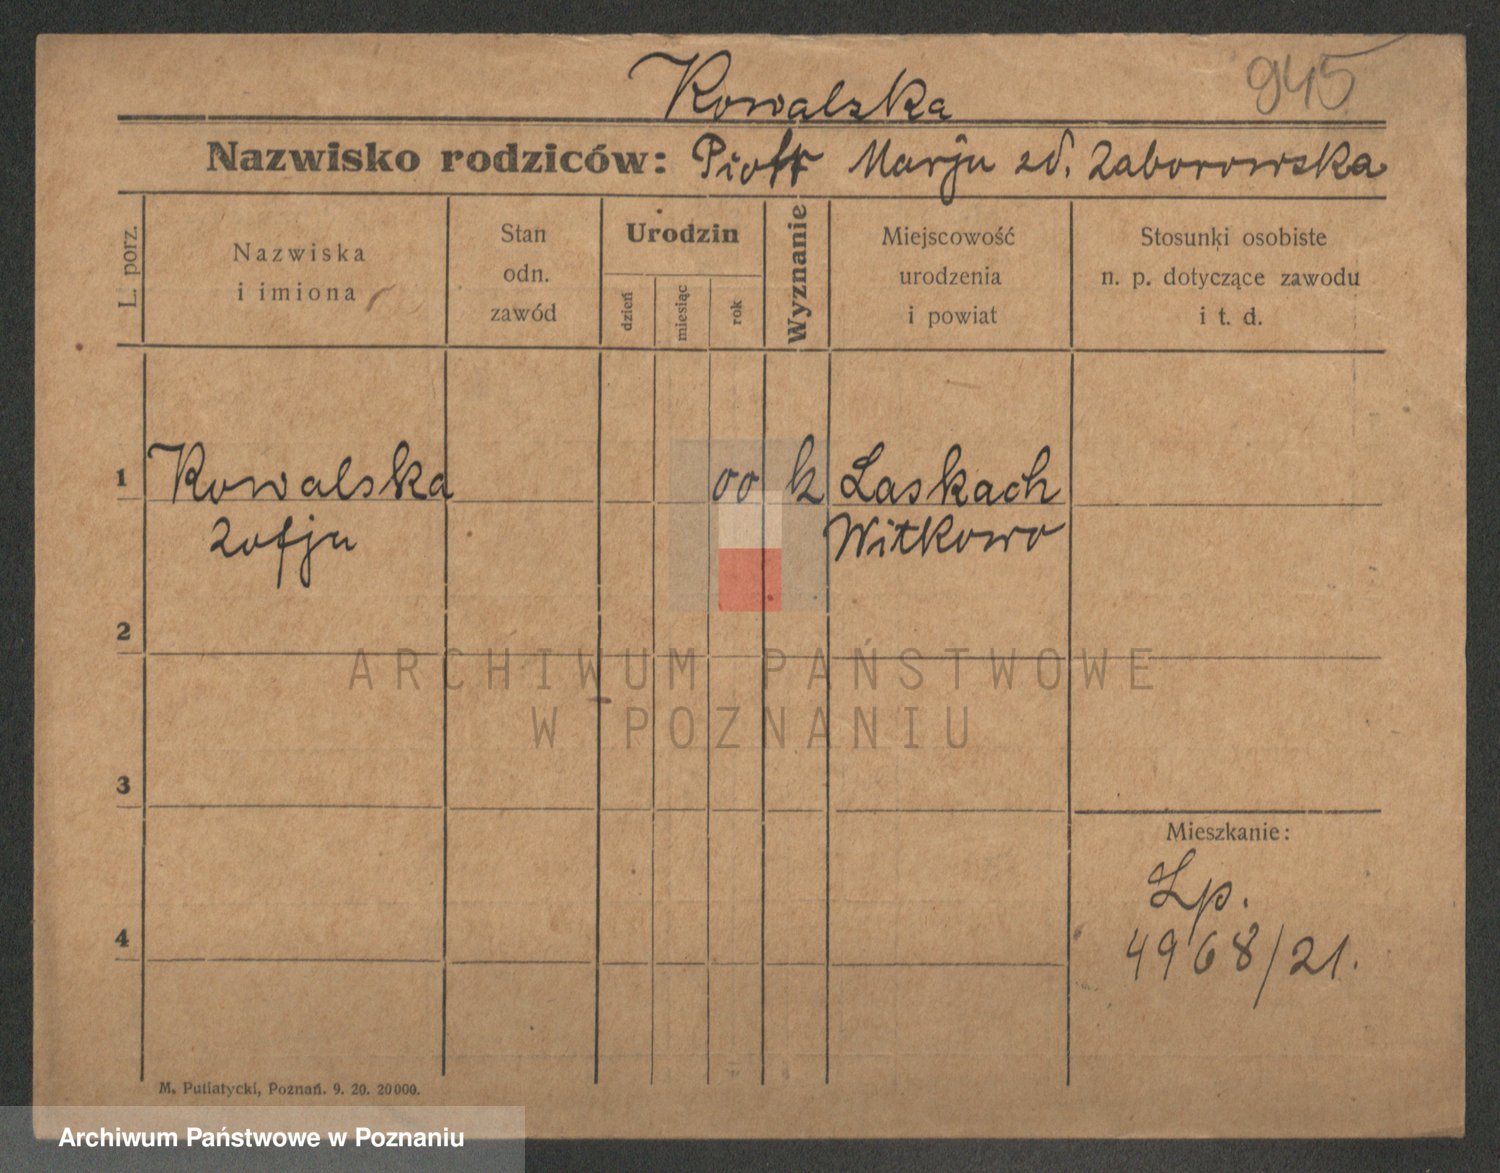 Kowalska
945
Nazwisko rodziców: Piotr Marja zd. Zaborowska
L. porz.
Nazwiska
i imiona
Stan
odn.
zawód
Urodzin
dzień
miesiąc
rok
Wyznanie
Miejscowość
urodzenia
i powiat
Stosunki osobiste
n. p. dotyczące zawodu
i t. d.
1 Kowalska 00 k Laskach
Zofja Witkowo
2
ARCHIWUM PAŃSTWOWE
W POZNANIU
3
Mieszkanie:
Lp.
4 4968/21.
M. Putiatycki, Poznań. 9. 20. 20000.
Archiwum Państwowe w Poznaniu